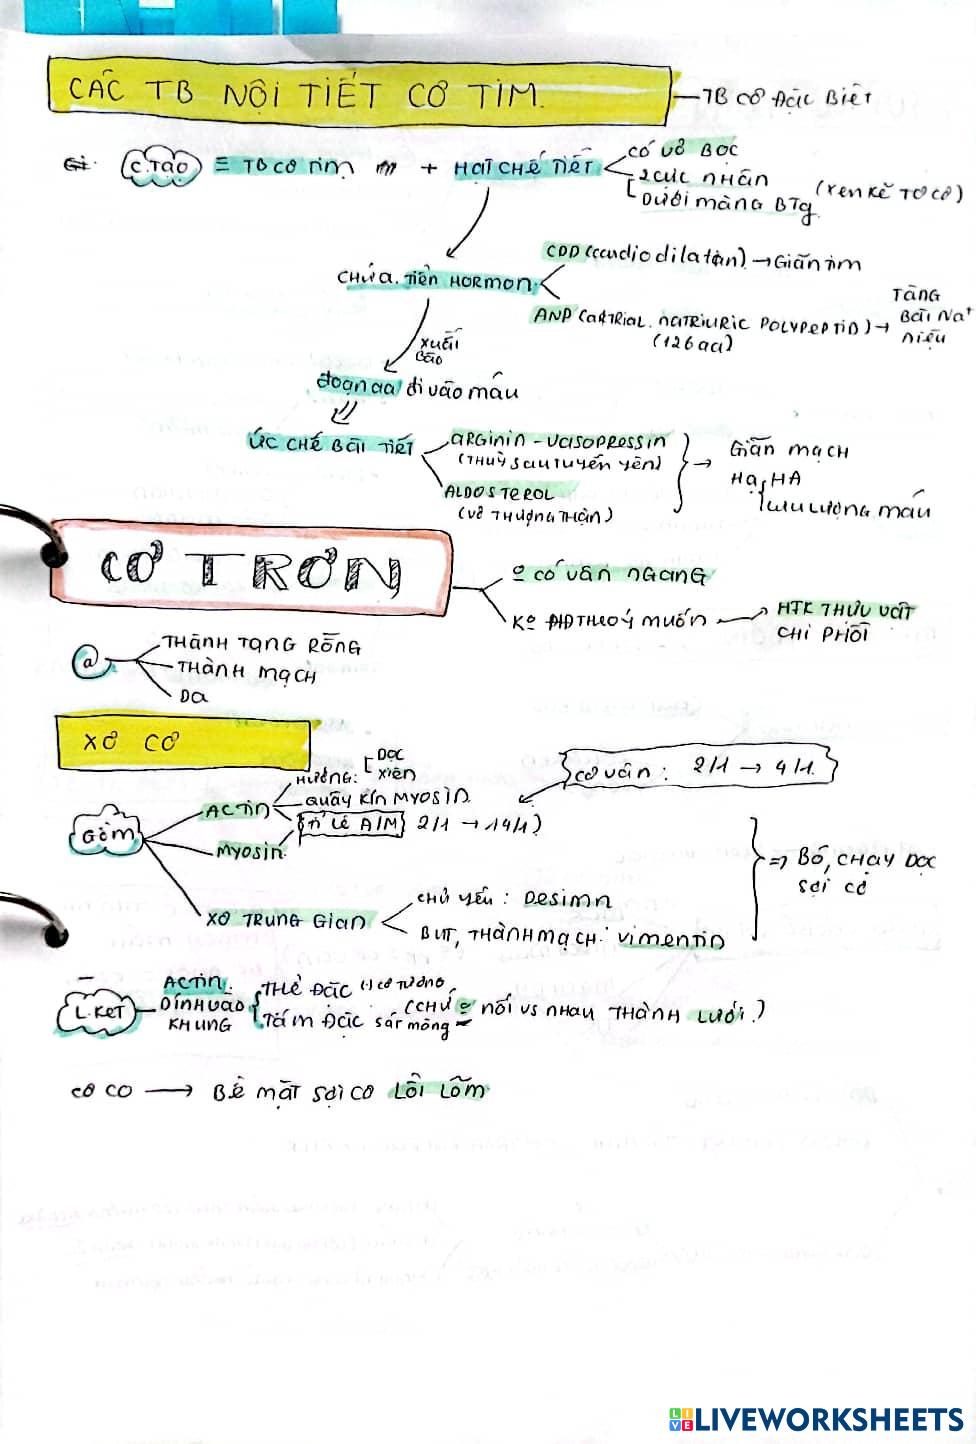 CÁC TB NỘI TIẾT CƠ TIM. — TB CƠ ĐẶC BIỆT
C.TẠO ≡ TB CƠ TIM + HẠT CHẾ TIẾT
CÓ VỎ BỌC
2 CỰC NHÂN
DƯỚI MÀNG BTg
(XEN KẼ TƠ CƠ)
CHỨA TIỀN HORMON
CDD (cardio dilatin) → GIÃN TIM
ANP (ATRIAL. NATRIURIC POLYPEPTID) → TĂNG BÀI Na+ NIỆU
(126 aa)
XUẤT BÀO
đoạn aa đi vào máu
ỨC CHẾ BÀI TIẾT
ARGININ - VASOPRESSIN
(THUỲ SAU TUYẾN YÊN)
ALDOSTEROL
(VỎ THƯỢNG THẬN)
→ GIÃN MẠCH
HẠ HA
LƯU LƯỢNG MÁU
CƠ TRƠN
º CÓ VÂN NGANG
Kº PHĐ THEO Ý MUỐN → HTK THỰC VẬT
CHI PHỐI
@
THÀNH TẠNG RỖNG
THÀNH MẠCH
DA
XƠ CƠ
GỒM
ACTIN
HƯỚNG: DỌC
XIÊN
QUÂY KÍN MYOSIN
TỈ LỆ A/M 2/1 → 14/1)
CƠ VÂN: 2/1 → 4/1.
MYOSIN
XƠ TRUNG GIAN
CHỦ YẾU: DESIMN
BUT, THÀNH MẠCH: VIMENTIN
⇒ BÓ, CHẠY DỌC
SỢI CƠ
L.KẾT
ACTIN:
DÍNH VÀO
KHUNG
THỂ ĐẶC (1) CƠ TƯƠNG
TẤM ĐẶC SÁT MÀNG
(CHÚ = NỐI VS NHAU THÀNH LƯỚI.)
CƠ CO → BỀ MẶT SỢI CƠ LỒI LÕM
LIVEWORKSHEETS